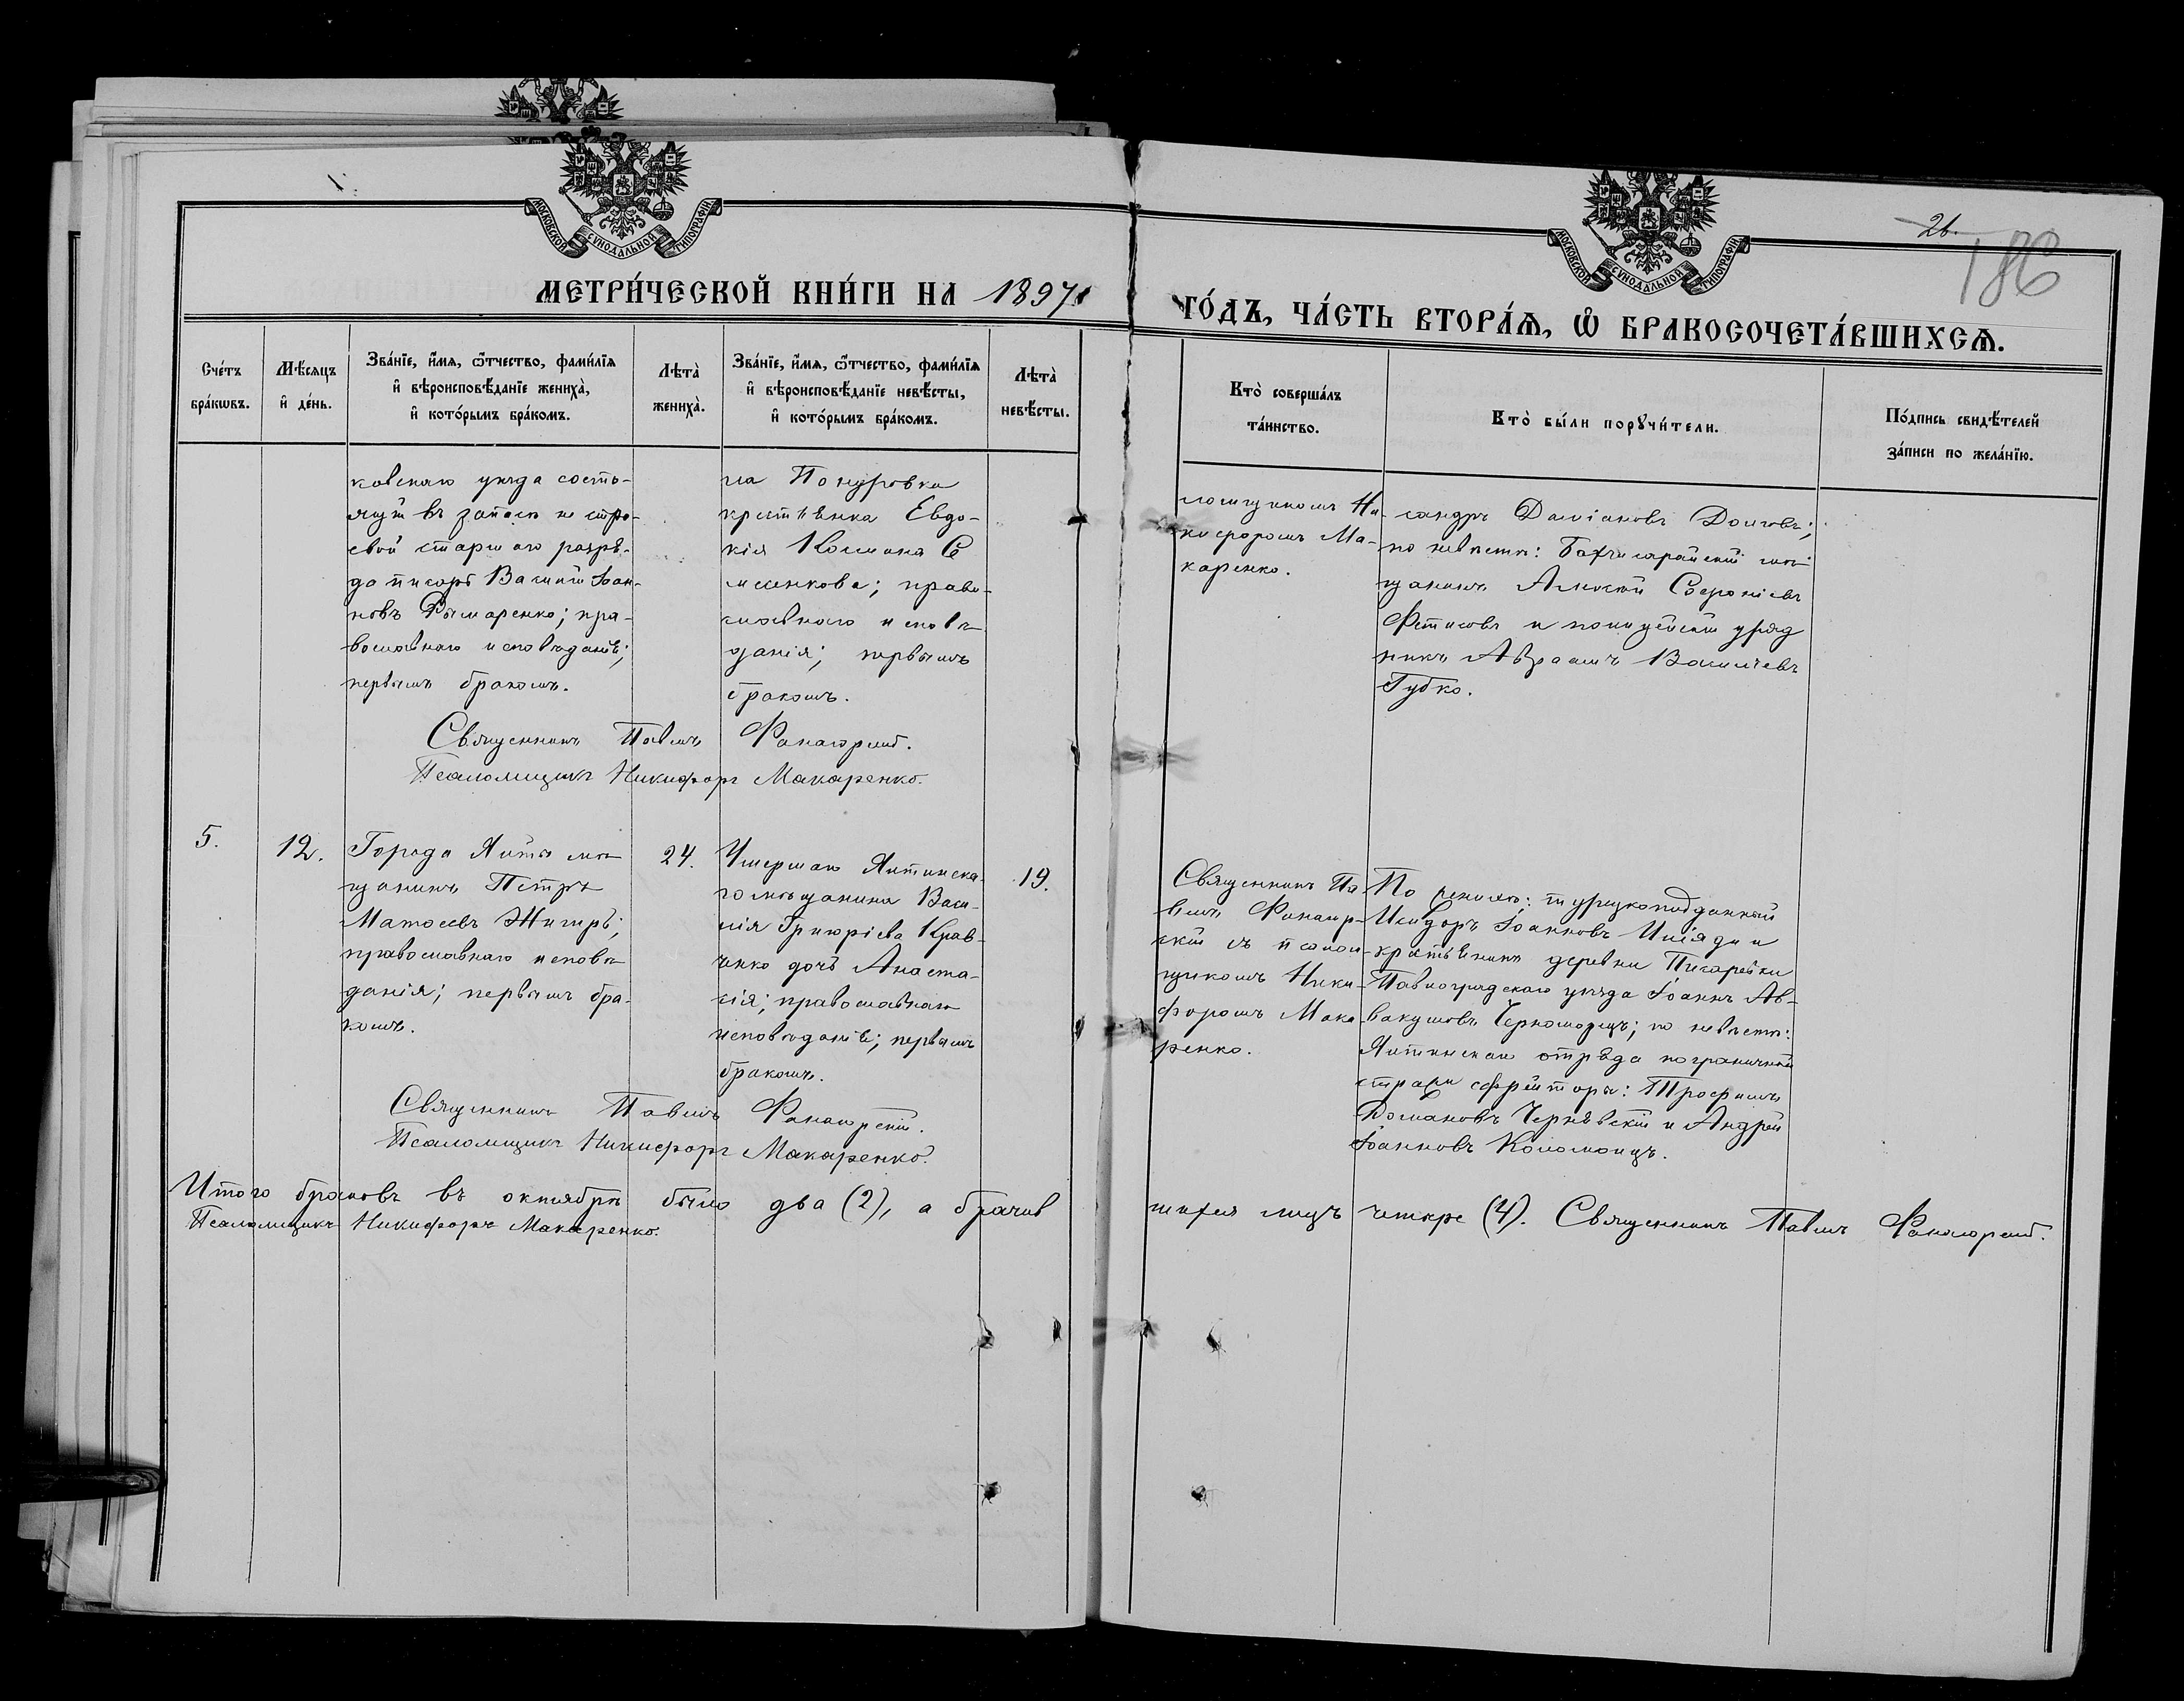 МОСКОВСКОЙ СУНОДАЛЬНОЙ ТИПОГРАФІИ
МОСКОВСКОЙ СУНОДАЛЬНОЙ ТИПОГРАФІИ
26.
186
МЕТРИ́ЧЕСКОЙ КНИ́ГИ НА 1897
ГО́ДЪ, ЧА́СТЬ ВТОРА́Ѧ, Ѡ҆ БРАКОСОЧЕТА́ВШИХСѦ.
Сче́тъ
бра́кѡвъ.
Мѣ́сяцъ
и҆ де́нь.
Зва́нїе, и҆́мѧ, ѻ҆́тчество, фами́лїѧ
и҆ вѣроисповѣ́данїе жениха̀,
и҆ кото́рымъ бра́комъ.
Лѣта̀
жениха̀.
Зва́нїе, и҆́мѧ, ѻ҆́тчество, фами́лїѧ
и҆ вѣроисповѣ́данїе невѣ́сты,
и҆ кото́рымъ бра́комъ.
Лѣта̀
невѣ́сты.
Кто̀ соверша́лъ
та́инство.
Кто̀ бы́ли порꙋчи́тели.
По́дпись свидѣ́телей
за́писи по жела́нїю.
ковскаго уѣзда состо-
ящій въ запасѣ не стро-
евой старшаго разря-
да писарь Василій Іоан-
новъ Рымаренко; пра-
вославнаго исповѣданія;
первымъ бракомъ.
ла Понуровка
крестьянка Евдо-
кія Космина Се
мененкова; право-
славнаго исповѣ
данія; первымъ
бракомъ.
ломщикомъ Ни-
кифоромъ Ма-
каренко.
сандръ Даміановъ Долговъ;
по невѣстѣ: Бахчисарайскій мѣ
щанинъ Алексѣй Софроніевъ
Фетисовъ и полицейскій уряд
никъ Авраамъ Васильевъ
Губко.
Священникъ Павелъ Фанагорскій.
Псаломщикъ Никифоръ Макаренко.
5.
12.
Города Ялты мѣ
щанинъ Петръ
Матѳеевъ Жигирь;
православнаго исповѣ
данія; первымъ бра-
комъ.
24.
Умершаго Ялтинска-
го мѣщанина Васи-
лія Григорьева Крав-
ченко дочь Анаста-
сія; православнаго
исповѣданія; первымъ
бракомъ.
19.
Священникъ Па-
велъ Фанагор-
скій съ псалом-
щикомъ Ники-
форомъ Мака-
ренко.
По женихѣ: турецкоподданный
Исидоръ Іоанновъ Иліяди и
крестьянинъ деревни Писаревки
Павлоградскаго уѣзда Іоаннъ Ав-
вакумовъ Черноморецъ; по невѣстѣ:
Ялтинскаго отряда пограничной
стражи ефрейторы: Трофимъ
Романовъ Чернявскій и Андрей
Іоанновъ Коломоецъ.
Священникъ Павелъ Фанагорскій.
Псаломщикъ Никифоръ Макаренко.
Итого браковъ въ октябрѣ было два (2), а брачив
шихся лицъ четыре (4). Священникъ Павелъ Фанагорскій.
Псаломщикъ Никифоръ Макаренко.